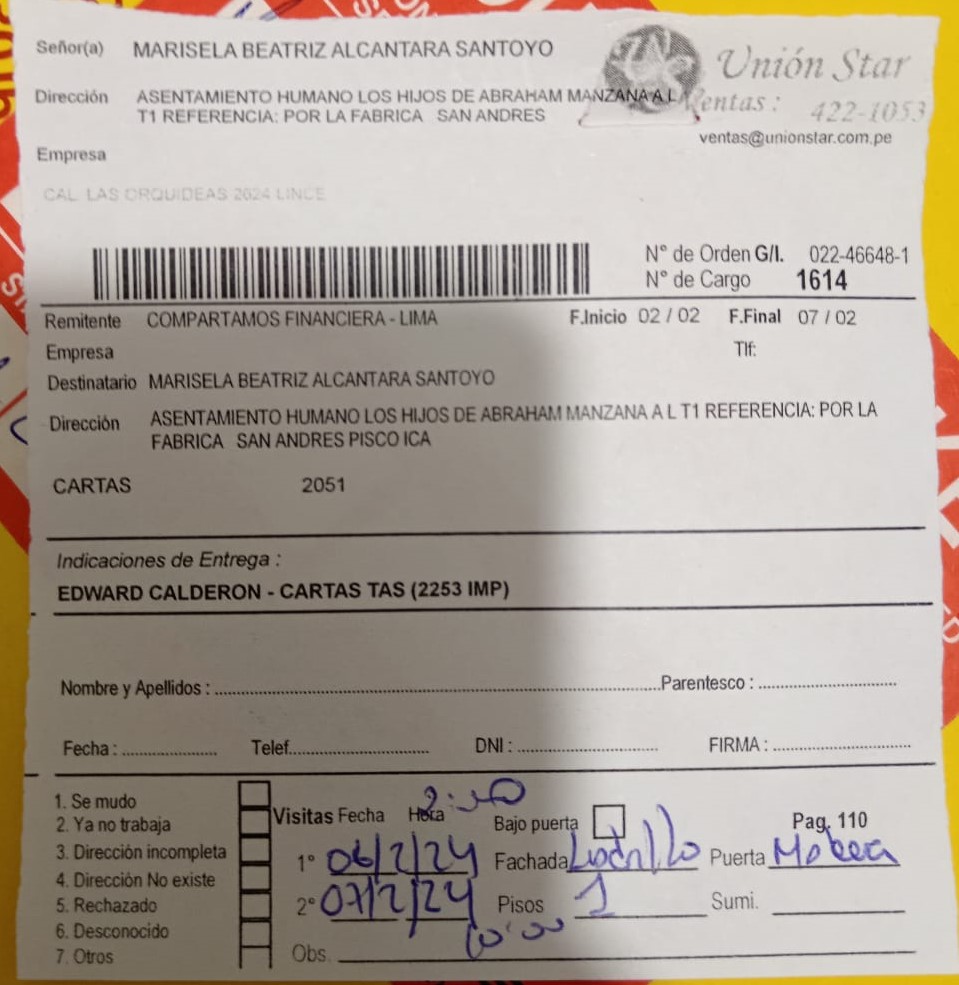 Señor(a) MARISELA BEATRIZ ALCANTARA SANTOYO
Unión Star
Dirección ASENTAMIENTO HUMANO LOS HIJOS DE ABRAHAM MANZANA A L
T1 REFERENCIA: POR LA FABRICA SAN ANDRES
Ventas : 422-1053
ventas@unionstar.com.pe
Empresa
CAL. LAS ORQUIDEAS 2624 LINCE
N° de Orden G/I. 022-46648-1
N° de Cargo 1614
Remitente COMPARTAMOS FINANCIERA - LIMA F.Inicio 02 / 02 F.Final 07 / 02
Empresa Tlf:
Destinatario MARISELA BEATRIZ ALCANTARA SANTOYO
Dirección ASENTAMIENTO HUMANO LOS HIJOS DE ABRAHAM MANZANA A L T1 REFERENCIA: POR LA
FABRICA SAN ANDRES PISCO ICA
CARTAS 2051
Indicaciones de Entrega :
EDWARD CALDERON - CARTAS TAS (2253 IMP)
Nombre y Apellidos : Parentesco :
Fecha : Telef. DNI : FIRMA :
1. Se mudo
2. Ya no trabaja
3. Dirección incompleta
4. Dirección No existe
5. Rechazado
6. Desconocido
7. Otros
Visitas Fecha Hora Bajo puerta Pag. 110
1° 06/2/24 Fachada Ladrillo Puerta
2° 07/2/24 Pisos 1 Sumi.
10:00
Obs.